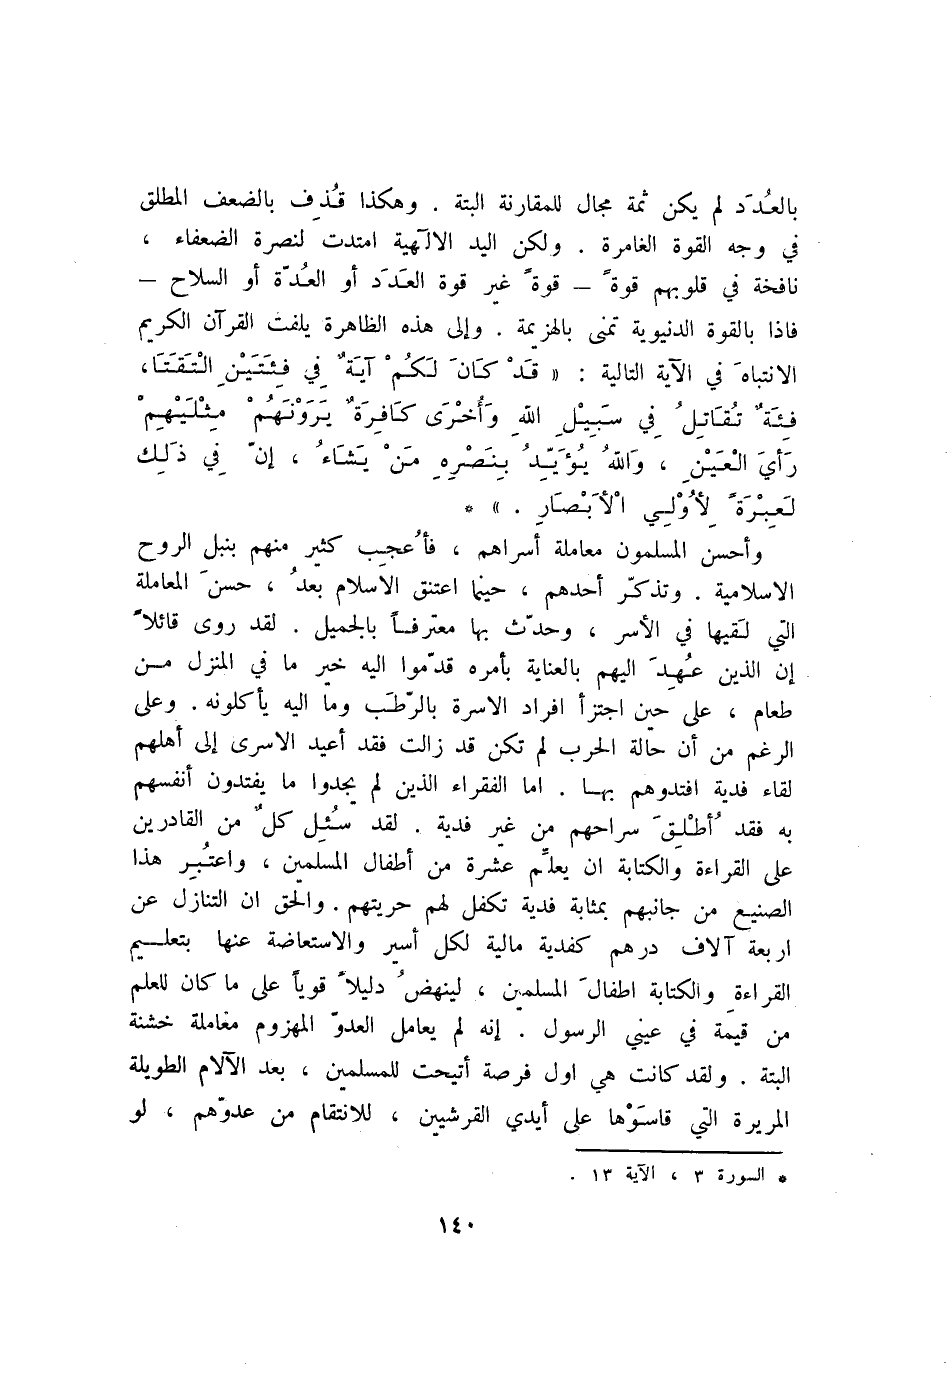 بالعُدَد لم يكن ثمة مجال للمقارنة البتة . وهكذا قُذِف بالضعف المطلق
في وجه القوة الغامرة . ولكن اليد الالهية امتدت لنصرة الضعفاء ،
نافخة في قلوبهم قوةً – قوةً غير قوة العَدَد أو العُدّة أو السلاح –
فاذا بالقوة الدنيوية تمنى بالهزيمة . وإلى هذه الظاهرة يلفت القرآن الكريم
الانتباهَ في الآية التالية : « قَدْ كَانَ لَكُمْ آيَةٌ فِي فِئَتَيْنِ الْتَقَتَا،
فِئَةٌ تُقَاتِلُ فِي سَبِيْلِ اللهِ وَأُخْرَى كَافِرَةٌ يَرَوْنَهُمْ مِثْلَيْهِمْ
رَأيَ الْعَيْنِ ، وَاللهُ يُؤَيِّدُ بِنَصْرِهِ مَنْ يَشَاءُ ، إنّ فِي ذَلِكَ
لَعِبْرَةً لِأُوْلِي الْأَبْصَارِ . » *
وأحسن المسلمون معاملة أسراهم ، فأُعجِب كثير منهم بنبل الروح
الاسلامية . وتذكّر أحدهم ، حينما اعتنق الاسلام بعدُ ، حسنَ المعاملة
التي لَقيها في الأسر ، وحدّث بها معترفاً بالجميل . لقد روى قائلاً
إن الذين عُهِدَ اليهم بالعناية بأمره قدّموا اليه خير ما في المنزل من
طعام ، على حين اجتزأ افراد الاسرة بالرّطَب وما اليه يأكلونه . وعلى
الرغم من أن حالة الحرب لم تكن قد زالت فقد أعيد الاسرى إلى أهلهم
لقاء فدية افتدوهم بها . اما الفقراء الذين لم يجدوا ما يفتدون أنفسهم
به فقد أُطْلِقَ سراحهم من غير فدية . لقد سُئِل كلٌ من القادرين
على القراءة والكتابة ان يعلّم عشرة من أطفال المسلمين ، واعتُبِر هذا
الصنيع من جانبهم بمثابة فدية تكفل لهم حريتهم . والحق ان التنازل عن
اربعة آلاف درهم كفدية مالية لكل أسير والاستعاضة عنها بتعليم
القراءة والكتابة اطفالَ المسلمين ، لينهضُ دليلاً قوياً على ما كان للعلم
من قيمة في عيني الرسول . إنه لم يعامل العدوّ المهزوم معاملة خشنة
البتة . ولقد كانت هي اول فرصة أتيحت للمسلمين ، بعد الآلام الطويلة
المريرة التي قاسَوْها على أيدي القرشيين ، للانتقام من عدوّهم ، لو
* السورة ٣ ، الآية ١٣ .
١٤٠